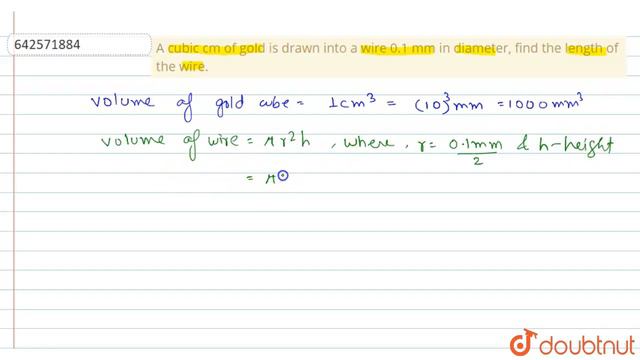 642571884
A cubic cm of gold is drawn into a wire 0.1 mm in diameter, find the length of
the wire.
volume of gold cube = 1cm³ = (10)³mm = 1000mm³
volume of wire = πr²h , where , r = 0.1mm/2 & h-height
= π
doubtnut